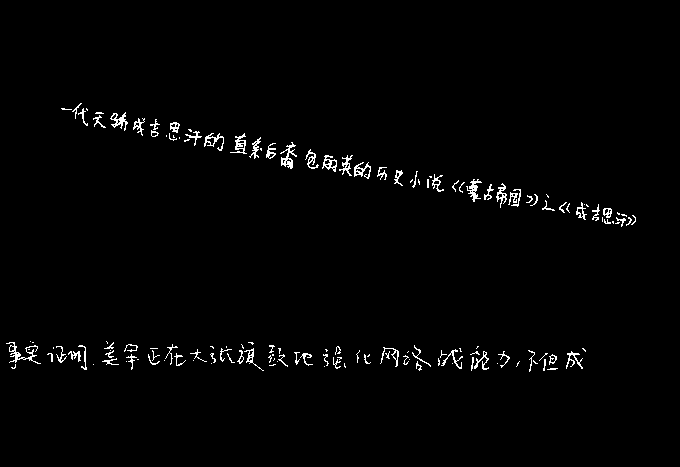 一代天骄成吉思汗的直系后裔包丽英的历史小说《蒙古帝国》之《成吉思汗》
事实证明,美军正在大张旗鼓地强化网络战能力,不但成